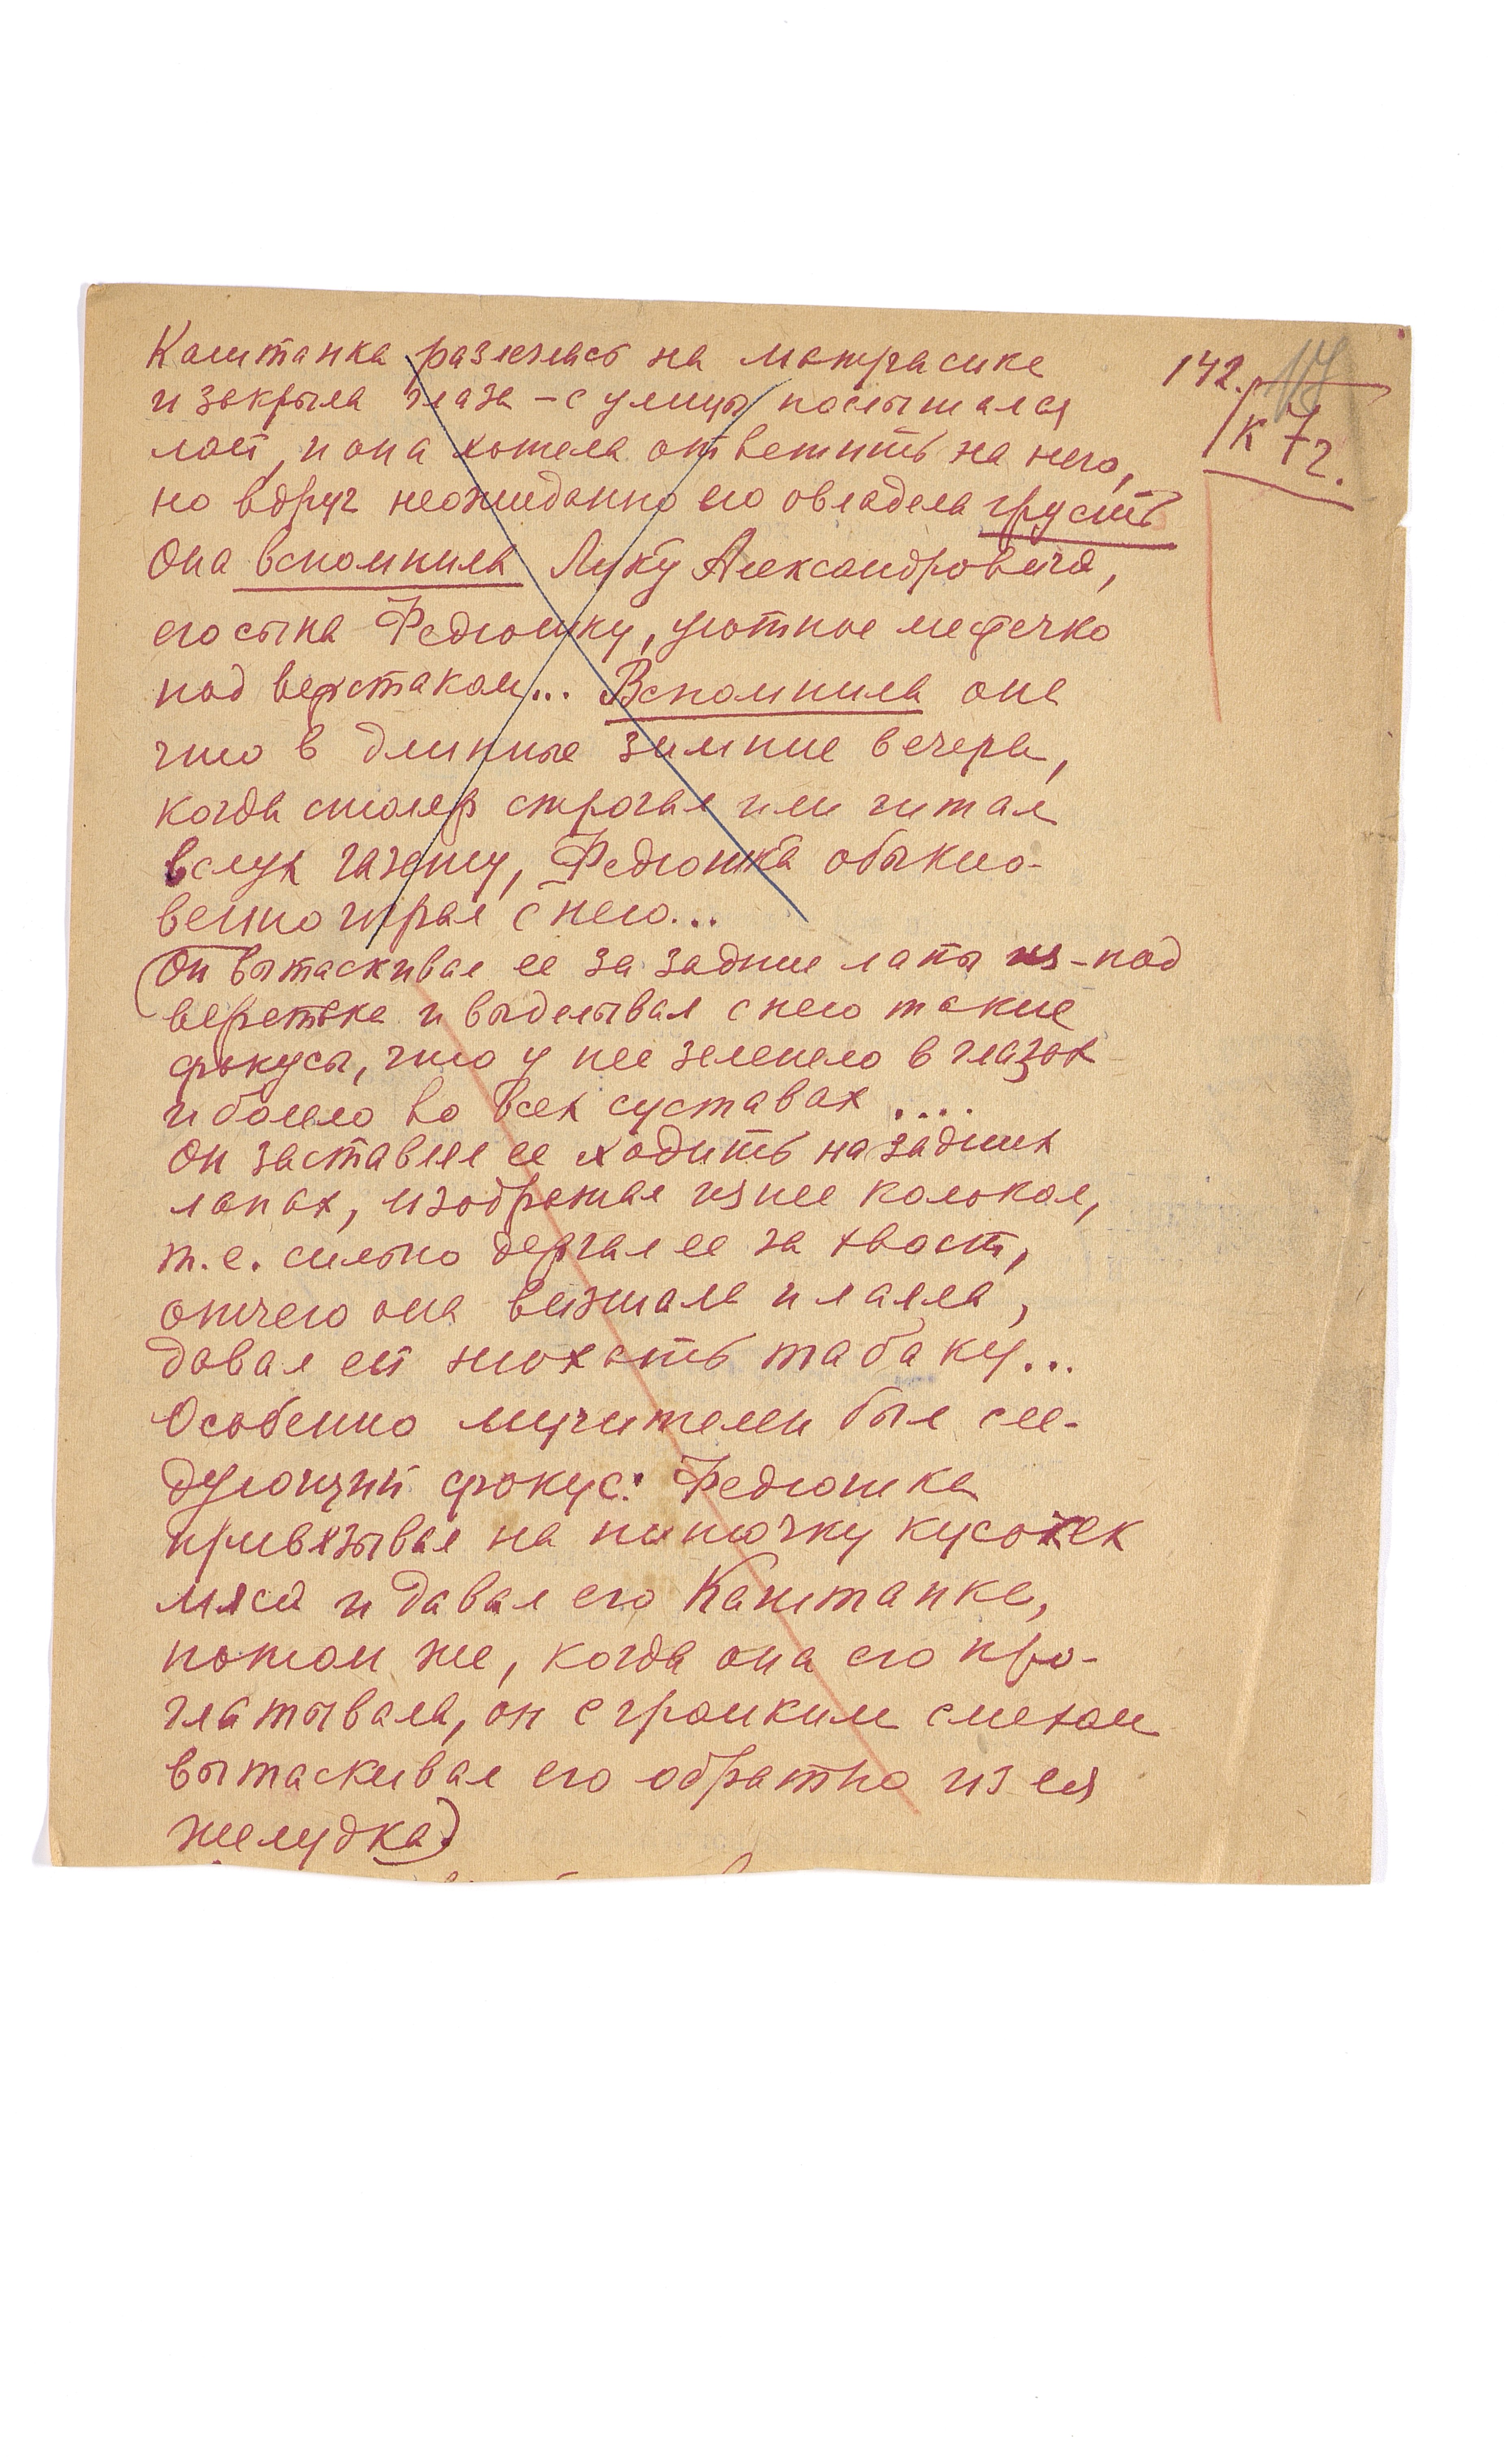 Каштанка разлеглась на матрасике
и закрыла глаза – с улицы послышался
лай, и она хотела ответить на него,
но вдруг неожиданно ею овладела грусть
Она вспомнила Луку Александровича,
его сына Федюшку, уютное местечко
под верстаком... Вспомнила она
что в длинные зимние вечера,
когда столяр строгал или читал
вслух газету, Федюшка обыкно-
венно играл с нею...
(Он вытаскивал ее за задние лапы из-под
верстака и выделывал с нею такие
фокусы, что у нее зеленело в глазах
и болело во всех суставах ....
Он заставлял ее ходить на задних
лапах, изображал из нее колокол,
т.е. сильно дергал ее за хвост,
отчего она визжала и лаяла,
давал ей нюхать табаку...
Особенно мучителен был сле-
дующий фокус: Федюшка
привязывал на ниточку кусочек
мяса и давал его Каштанке,
потом же, когда она его про-
глатывала, он с громким смехом
вытаскивал его обратно из ея
желудка)
142.
к 72.